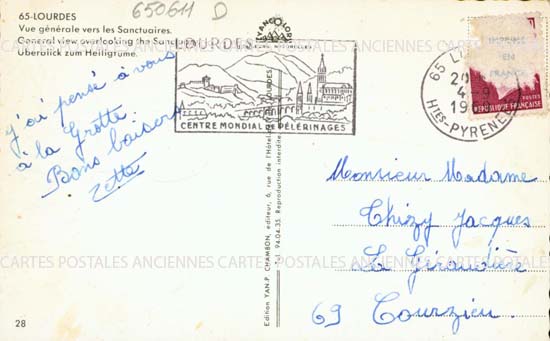 65-LOURDES
Vue générale vers les Sanctuaires.
General view overlooking the
Überblick zum Heiligtume.
650611 D
LOURDES
CENTRE MONDIAL DE PÈLERINAGES
65 L
20
4-9
19
Htes-PYRENEES
IMPRIMÉ
EN
FRANCE
REPUBLIQUE FRANÇAISE
CARTES POSTALES ANCIENNES CARTES POSTALES ANCIENNES
j'ai pensé à vous
à la Grotte
Bons baisers
Zette
Edition YAN-P. CHAMBON, éditeur, 6, rue de l'Hôtel
Tél. 94.04.35. Reproduction interdite
Monsieur Madame
Thizy Jacques
La Giraudière
69 Courzieu.
28